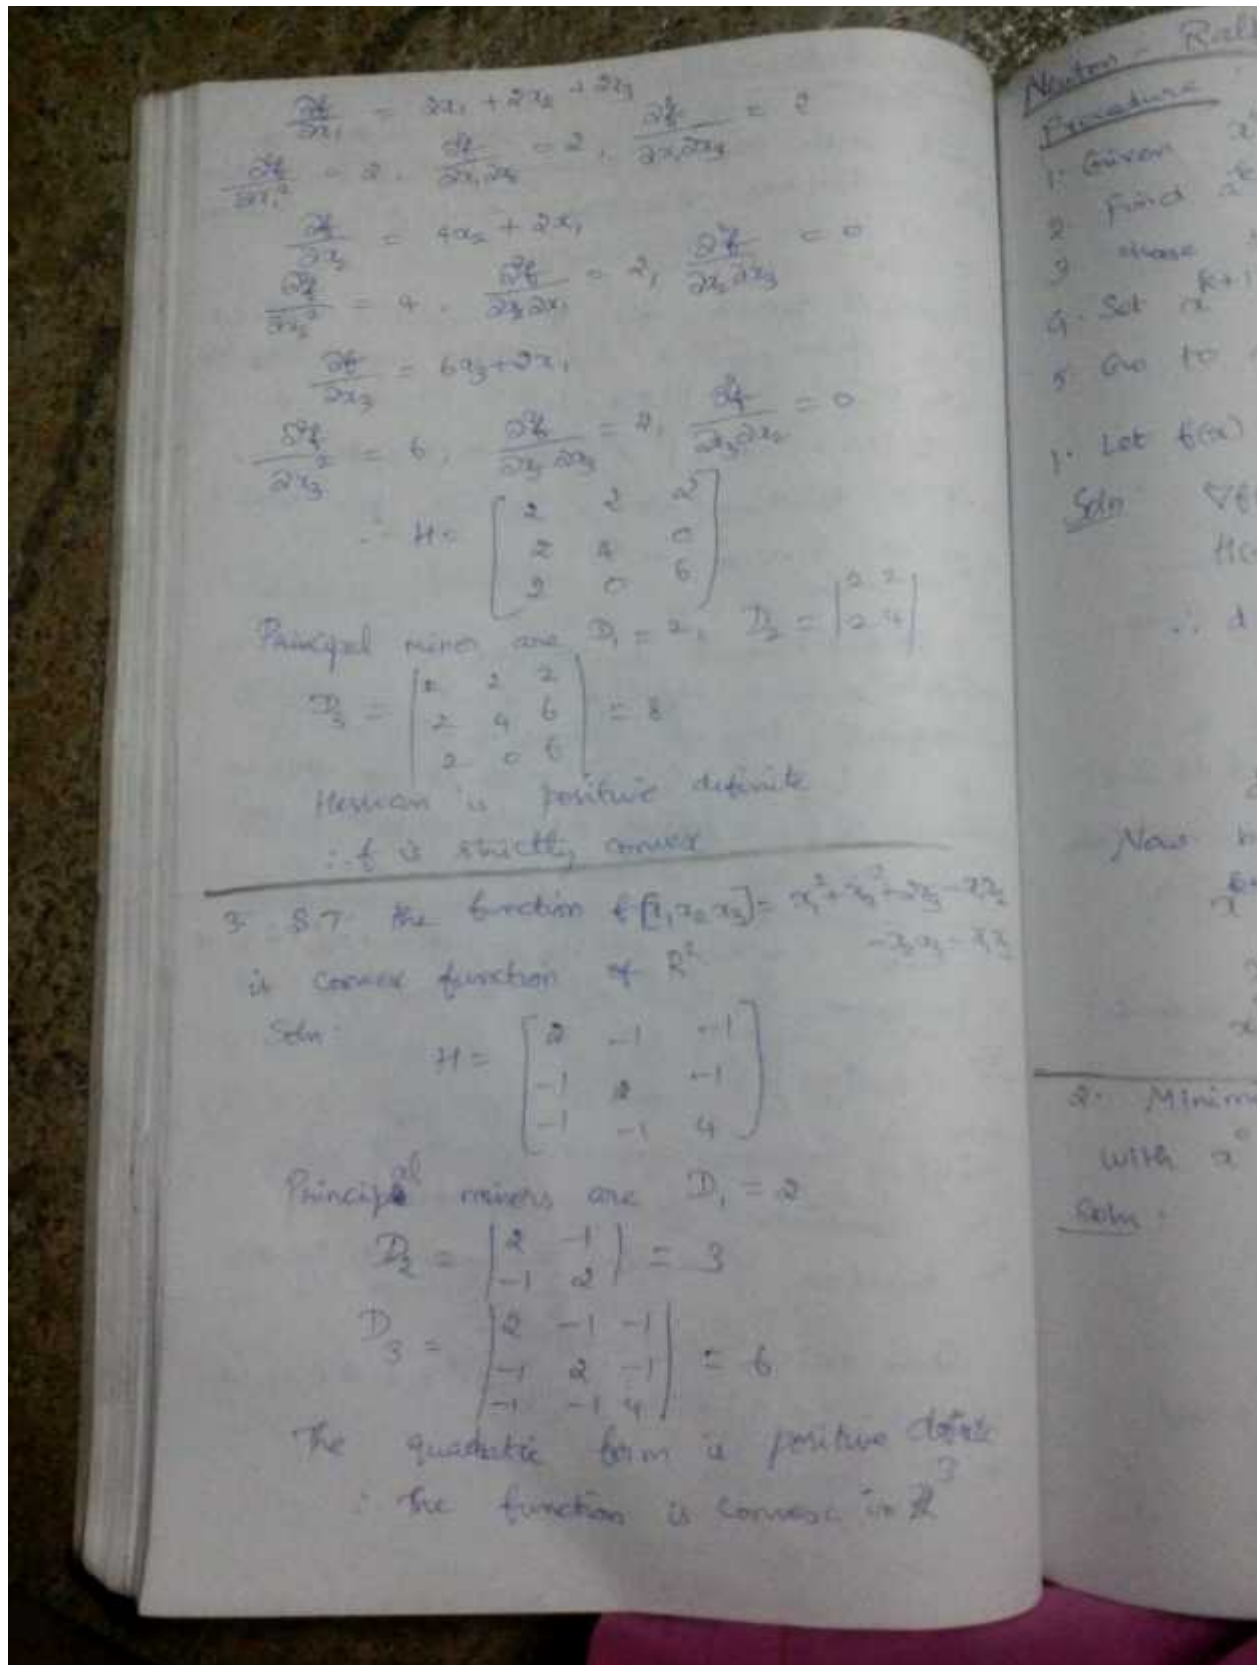 ∂f/∂x₁ = 2x₁ + 2x₂ + 2x₃
∂²f/∂x₁² = 2, ∂f/∂x₁∂x₂ = 2, ∂f/∂x₁∂x₃ = 2
∂f/∂x₂ = 4x₂ + 2x₁
∂²f/∂x₂² = 4, ∂²f/∂x₂∂x₁ = 2, ∂²f/∂x₂∂x₃ = 0
∂f/∂x₃ = 6x₃ + 2x₁
∂²f/∂x₃² = 6, ∂²f/∂x₁∂x₃ = 2, ∂²f/∂x₃∂x₂ = 0
∴ H = [2 2 2
2 4 0
2 0 6]
Principal minor are D₁ = 2, D₂ = |2 2
2 4|
D₃ = |2 2 2
2 4 6
2 0 6| = 8
Hessian is positive definite
∴ f is strictly convex
3. S.T the function f[x₁, x₂ x₃] = x₁² + x₂² + 2x₃ - x₁x₂
- x₂x₃ - x₁x₃
is convex function of R²
Soln.
H = [2 -1 -1
-1 2 -1
-1 -1 4]
Principal minors are D₁ = 2
D₂ = |2 -1
-1 2| = 3
D₃ = |2 -1 -1
-1 2 -1
-1 -1 4| = 6
The quadratic form is positive definite
∴ The function is convex in R³
Newton -
Procedure:
1. Given
2. Find
3.
4. Set x^{k+1}
5. Go to
1. Let f(x)
Soln ∇f
H(
∴ d
Now
2. Minim
with x⁰
Soln.